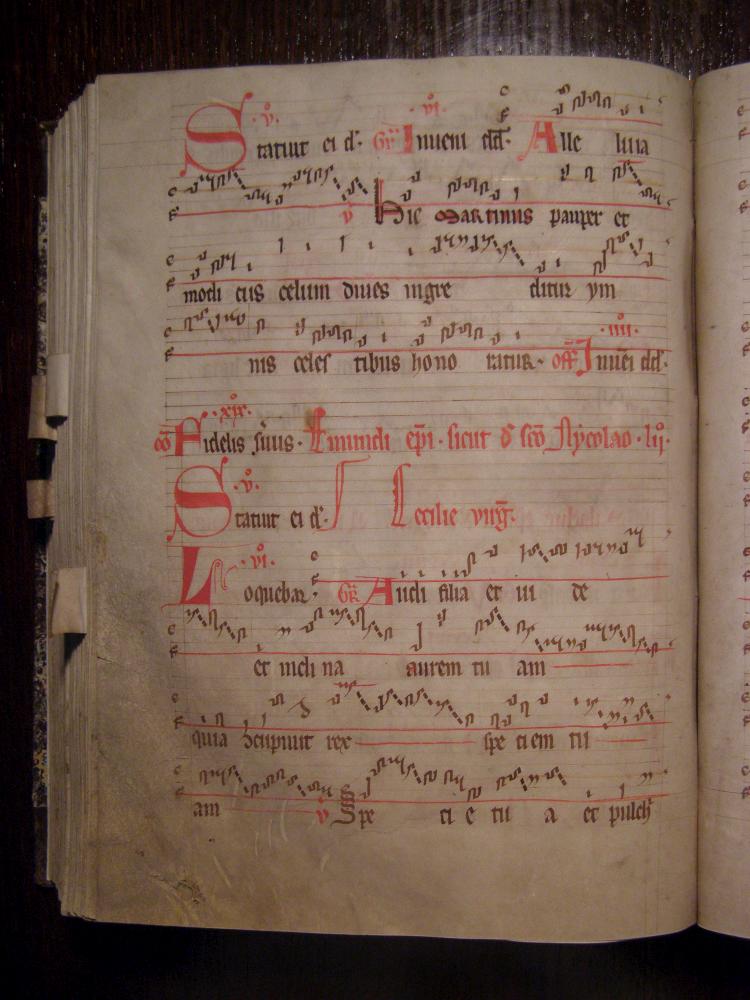 Statuit ei d. Gr. Inueni dd. Alle luia
Hic Martinus pauper et
modi cus celum diues ingre ditur ym
nis celes tibus hono ratur. off. Inueni dd.
co Fidelis suus. Emundi epi. sicut d sco Nycolao. lij.
Statuit ei d. Cecilie virg.
Loquebar. Gr. Audi filia et ui de
et incli na aurem tu am
quia concupiuit rex spe ciem tu
am v Spe ci e tu a et pulch